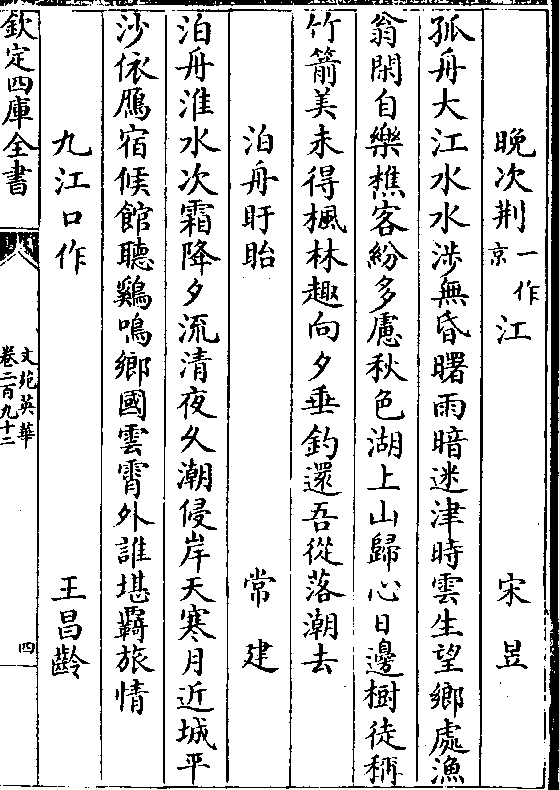 晚次荆一作京江 宋昱
孤舟大江水水涉無昏曙雨暗迷津時雲生望鄉處漁
翁閑自樂樵客紛多慮秋色湖上山歸心日邊樹徒稱
竹箭美未得楓林趣向夕垂釣還吾從落潮去
泊舟盱眙 常建
泊舟淮水次霜降夕流清夜久潮侵岸天寒月近城平
沙依鴈宿候館聽鷄鳴鄉國雲霄外誰堪羇旅情
九江口作 王昌齡
欽定四庫全書
文苑英華
卷二百九十二
四